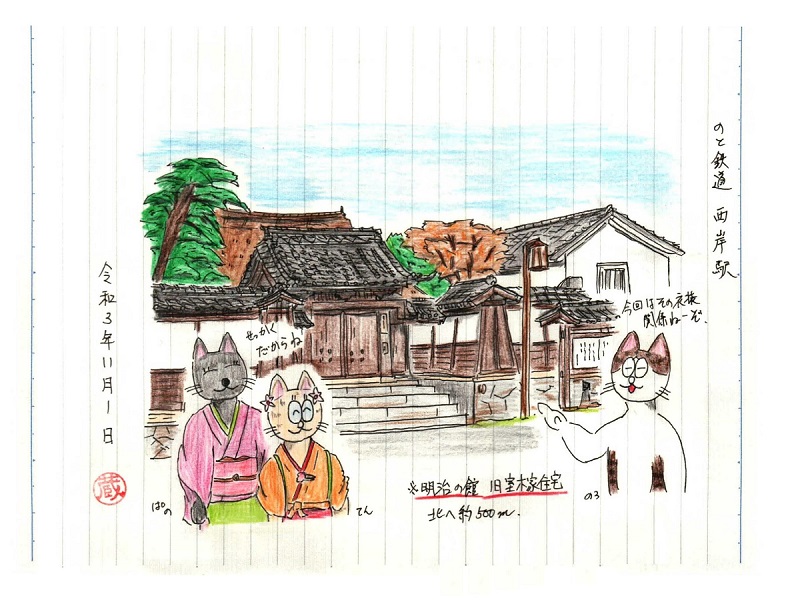 のと鉄道 西岸駅
今回はその衣装
関係ねーぞ.
せっかく
だからね
令和3年11月1日
蔵
ぱの
てん
のろ
※明治の館 旧室木家住宅
北へ約500m.